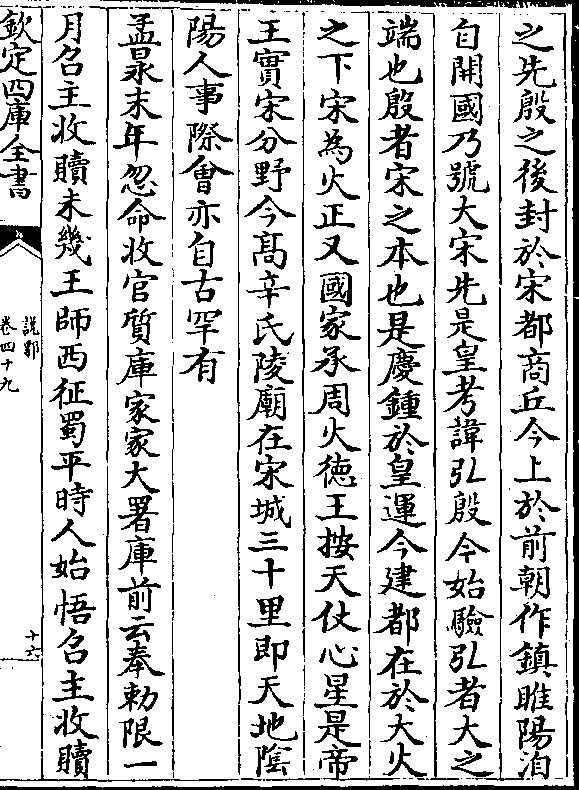 之先殷之後封於宋都商丘今上於前朝作鎮睢陽洎
自開國乃號大宋先是皇考諱弘殷今始驗弘者大之
端也殷者宋之本也是慶鍾於皇運今建都在於大火
之下宋為火正又國家承周火徳王按天仗心星是帝
王實宋分野今髙辛氏陵廟在宋城三十里即天地隂
陽人事際㑹亦自古罕有
孟㫤末年忽命收官質庫家家大署庫前云奉勅限一
月召主收贖未幾王師西征蜀平時人始悟召主收贖
欽定四庫全書
說郛
卷四十九
十六